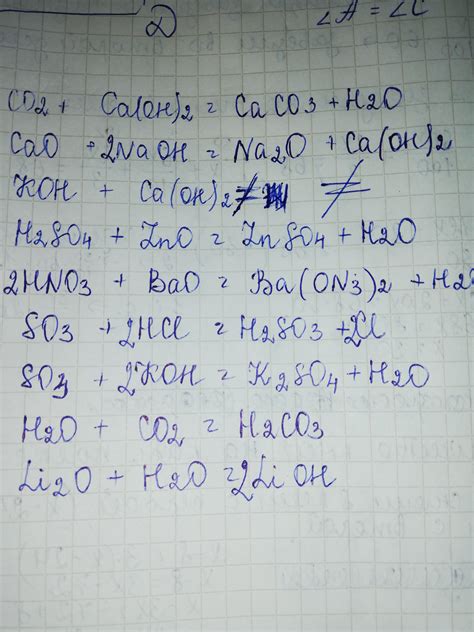 Д ∠A = ∠C
CO2 + Ca(OH)2 = CaCO3 + H2O
CaO + 2NaOH = Na2O + Ca(OH)2
KOH + Ca(OH)2 ≠ ≠
H2SO4 + ZnO = ZnSO4 + H2O
2HNO3 + BaO = Ba(ON3)2 + H2
SO3 + 2HCl = H2SO3 + 2Cl
SO3 + 2KOH = K2SO4 + H2O
H2O + CO2 = H2CO3
Li2O + H2O = 2LiOH